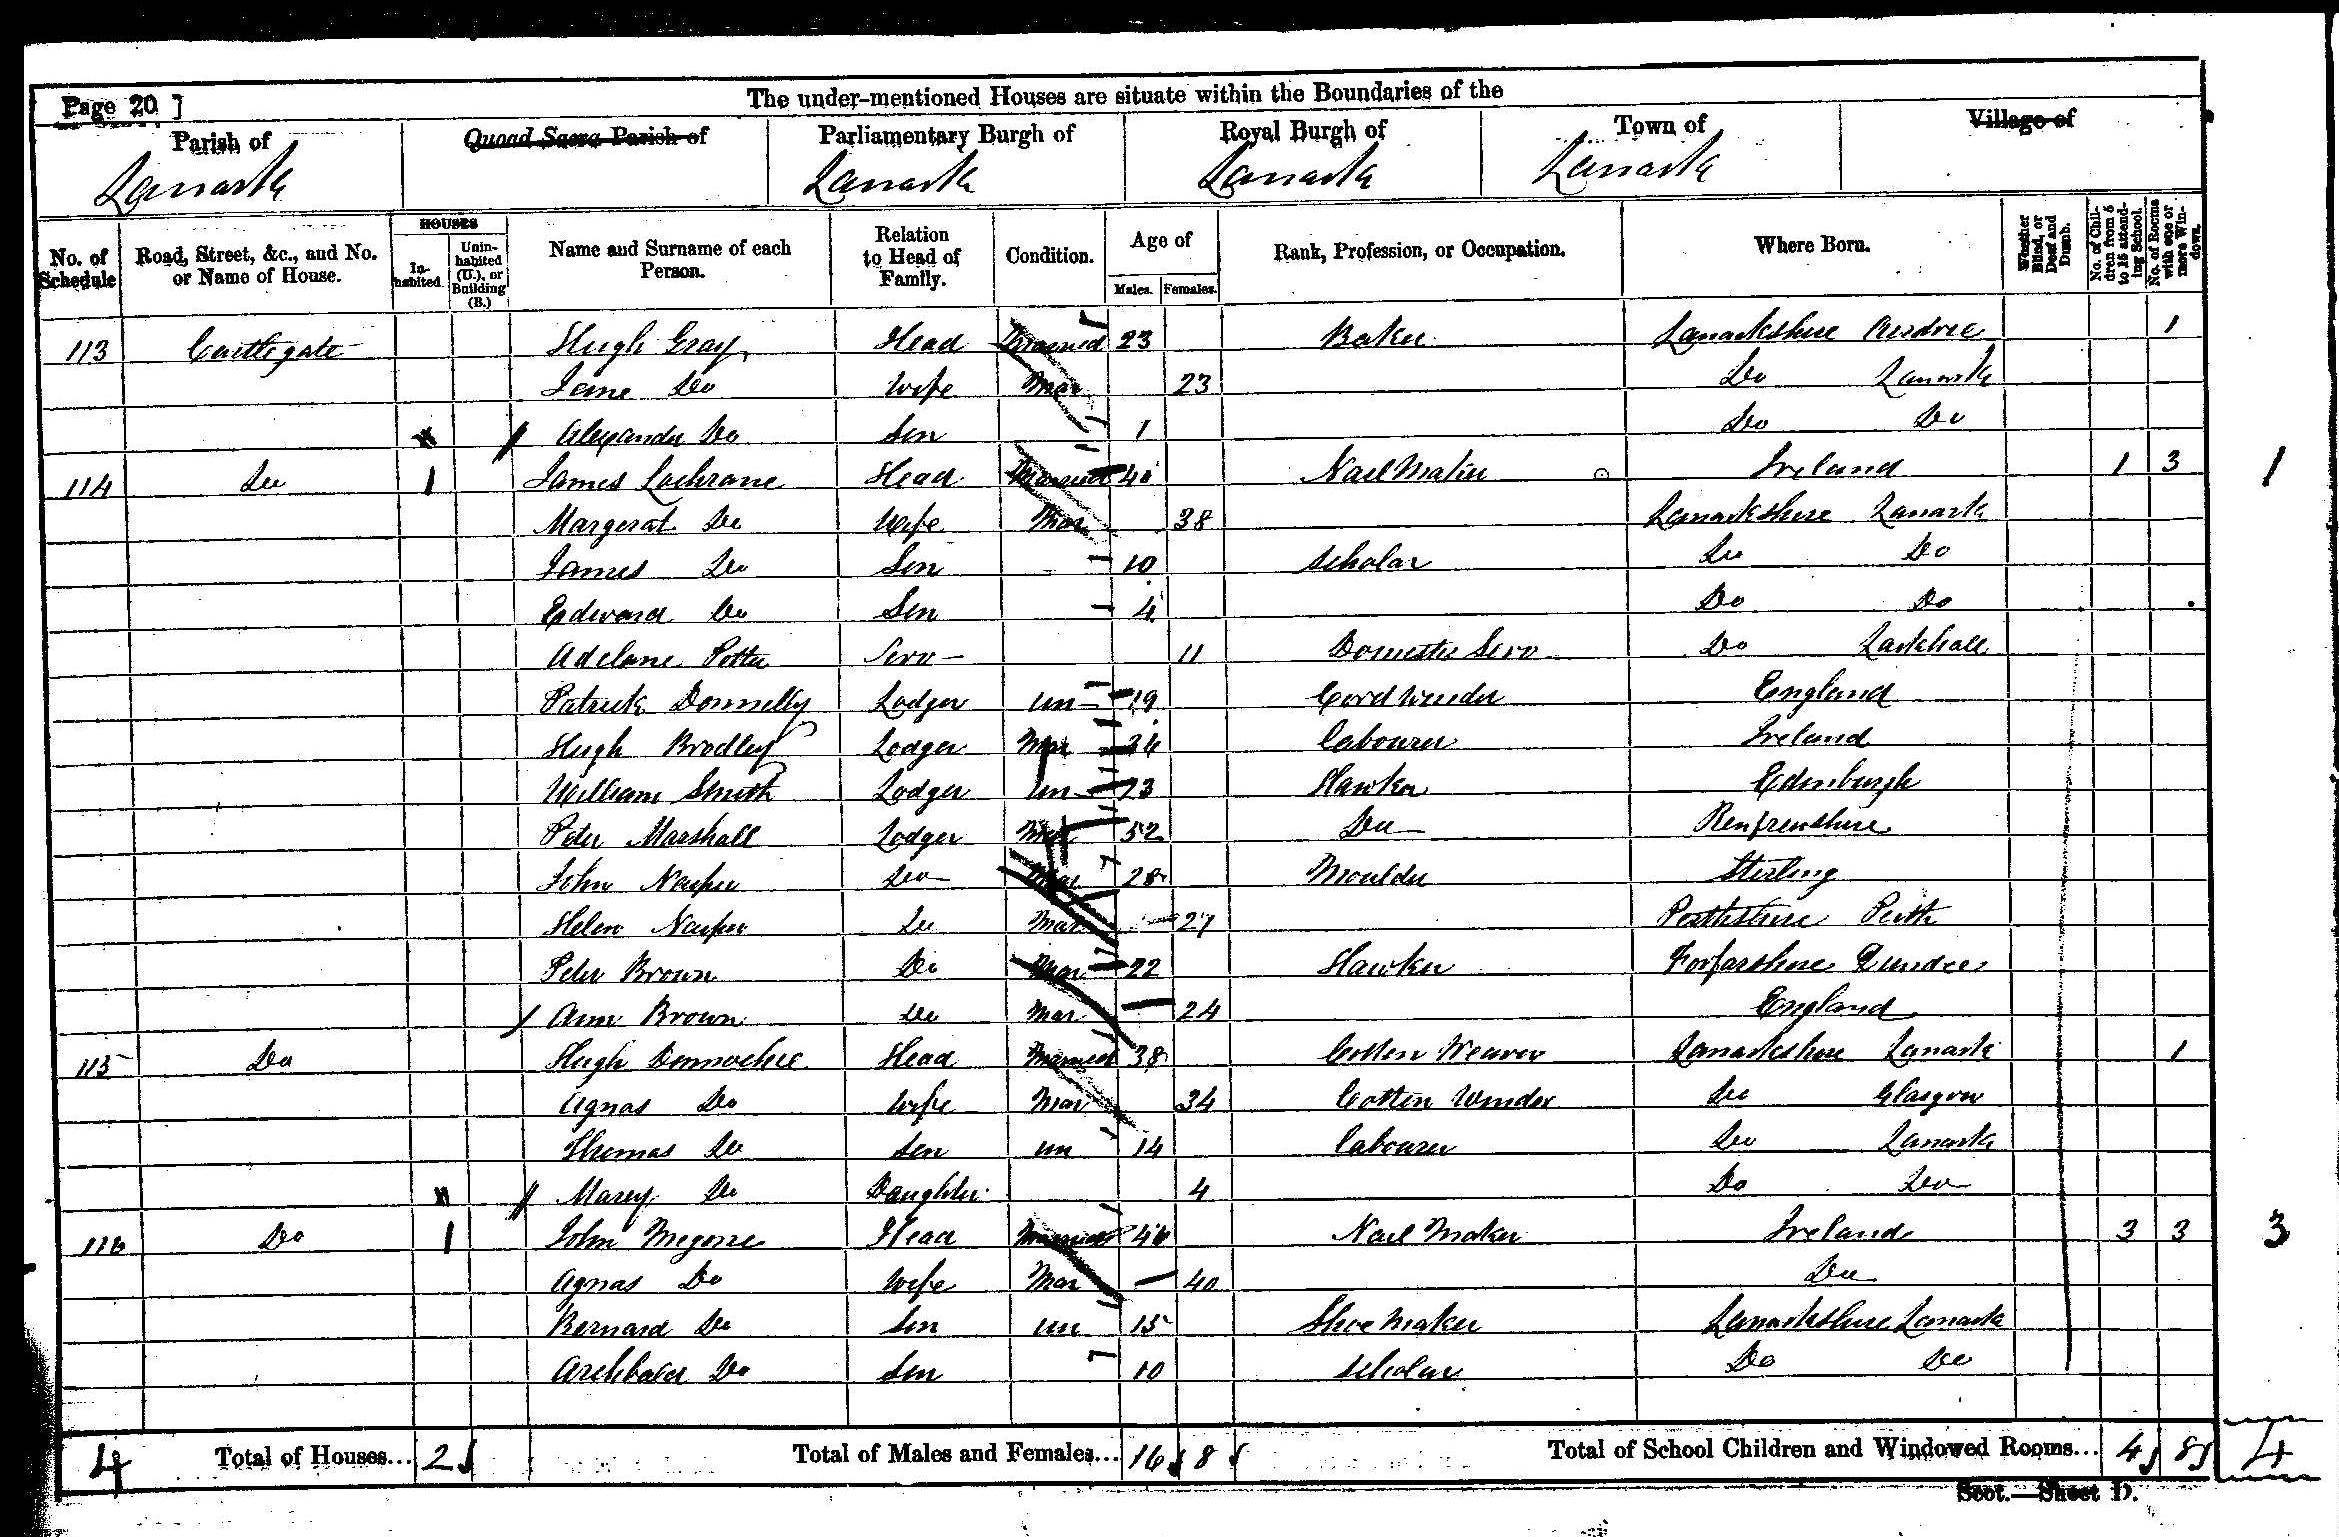 Page 20 ]
The under-mentioned Houses are situate within the Boundaries of the
Parish of Quoad Sacra Parish of Parliamentary Burgh of Royal Burgh of Town of Village of
Lanark Lanark Lanark Lanark
No. of Schedule Road, Street, &c., and No. or Name of House. HOUSES Inhabited. Uninhabited (U.), or Building (B.) Name and Surname of each Person. Relation to Head of Family. Condition. Age of Males. Females. Rank, Profession, or Occupation. Where Born. Whether Blind, or Deaf and Dumb. No. of Children from 5 to 15 attending School. No. of Rooms with one or more Windows.
113 Castlegate Hugh Gray Head Married 23 Baker Lanarkshire Airdrie 1
Jane Do Wife Mar 23 Do Lanark
Alexander Do Son 1 Do Do
114 Do 1 James Lochrane Head Married 40 Nail Maker Ireland 1 3 1
Margerat Do Wife Mar 38 Lanarkshire Lanark
James Do Son 10 Scholar Do Do
Edward Do Son 4 Do Do
Adelane Potter Serv 11 Domestic Serv Do Larkhall
Patrick Donnelly Lodger Un 19 Cord Winder England
Hugh Bradley Lodger Mar 34 Labourer Ireland
William Smith Lodger Un 23 Hawker Edinburgh
Peter Marshall Lodger 52 Do Renfrewshire
John Napier Do Mar 28 Moulder Stirling
Helen Napier Do Mar 27 Perthshire Perth
Peter Brown Do Mar 22 Hawker Forfarshire Dundee
Ann Brown Do Mar 24 England
115 Do Hugh Donnochie Head Married 38 Cotton Weaver Lanarkshire Lanark 1
Agnas Do Wife Mar 34 Cotton Winder Do Glasgow
Thomas Do Son Un 14 Labourer Do Lanark
Marey Do Daughter 4 Do Do
116 Do 1 John Megorre Head Married 46 Nail Maker Ireland 3 3 3
Agnas Do Wife Mar 40 Do
Bernard Do Son Un 15 Shoe Maker Lanarkshire Lanark
Archbald Do Son 10 Scholar Do Do
4 Total of Houses... 2 Total of Males and Females... 16 8 Total of School Children and Windowed Rooms... 4 8 4
Scot.—Sheet D.